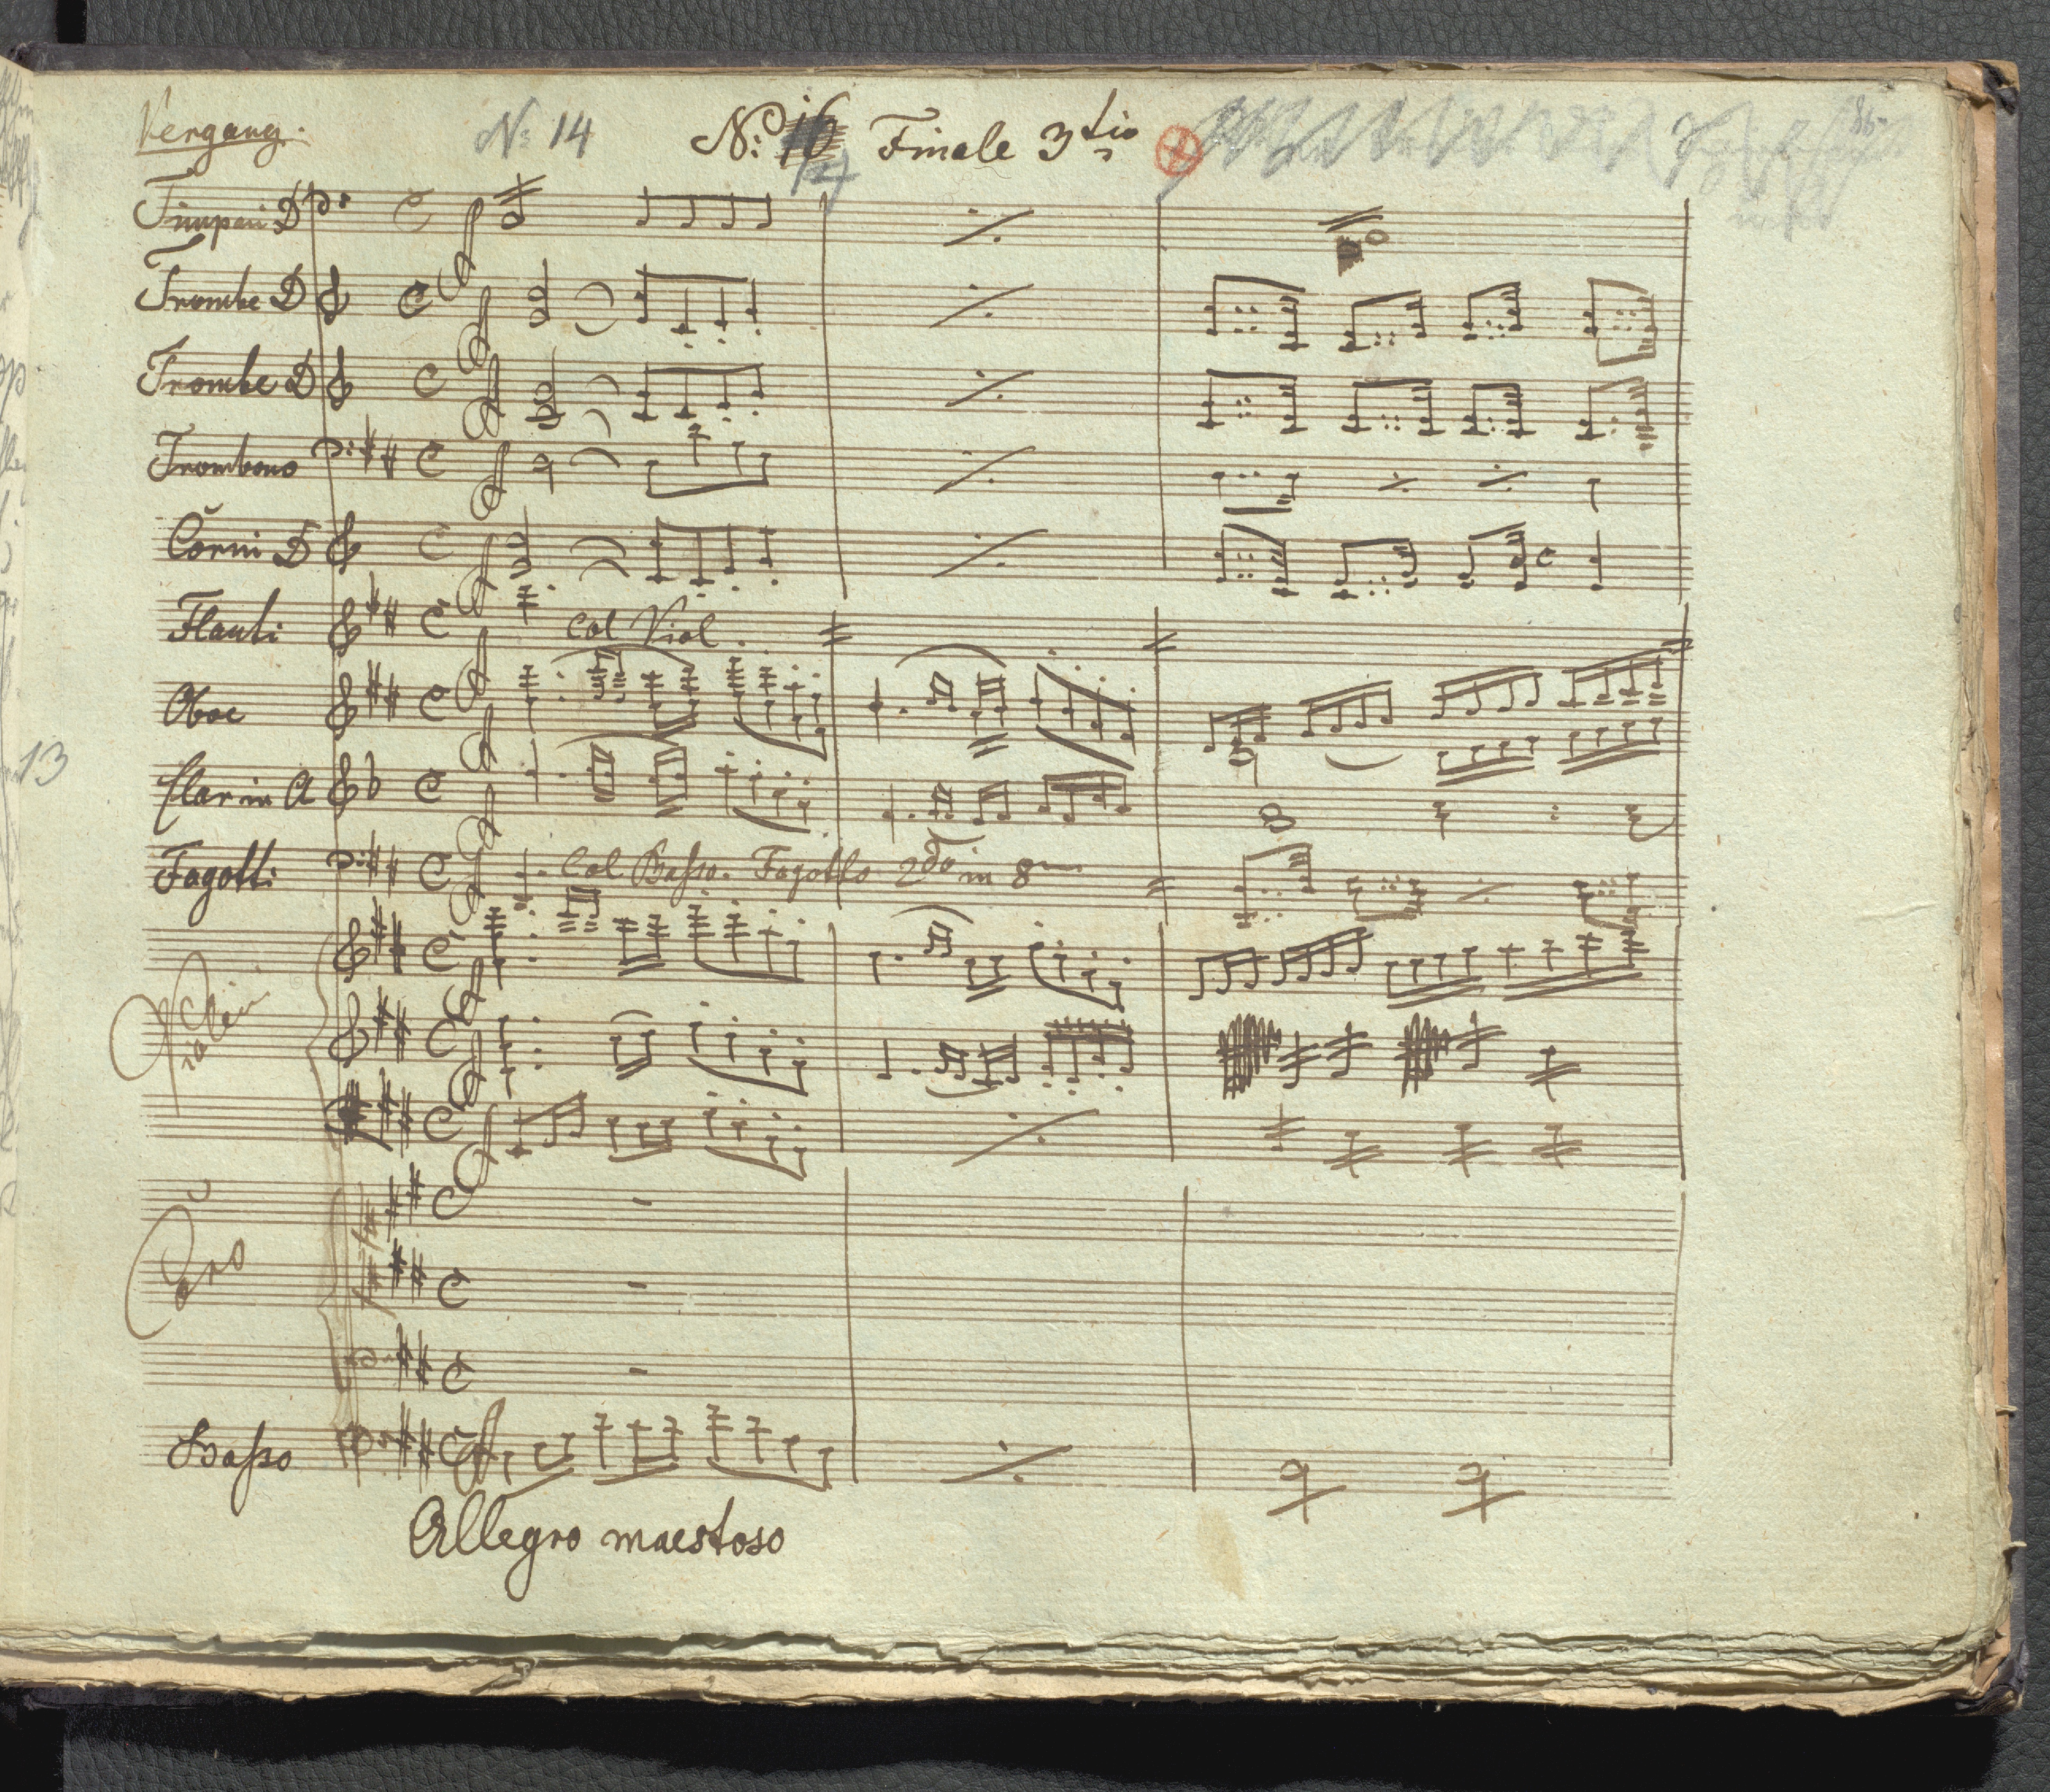 Vergang.
No: 14
No: 16 Finale 3tio
17
Timpani D
Trombe D
Trombe D
Trombono
Corni D
Flauti
Col Viol.
Oboe
13
Clar in A
Fagotti
Col Basso. Fagotto 2do in 8
Violini
Coro
Basso
Allegro maestoso